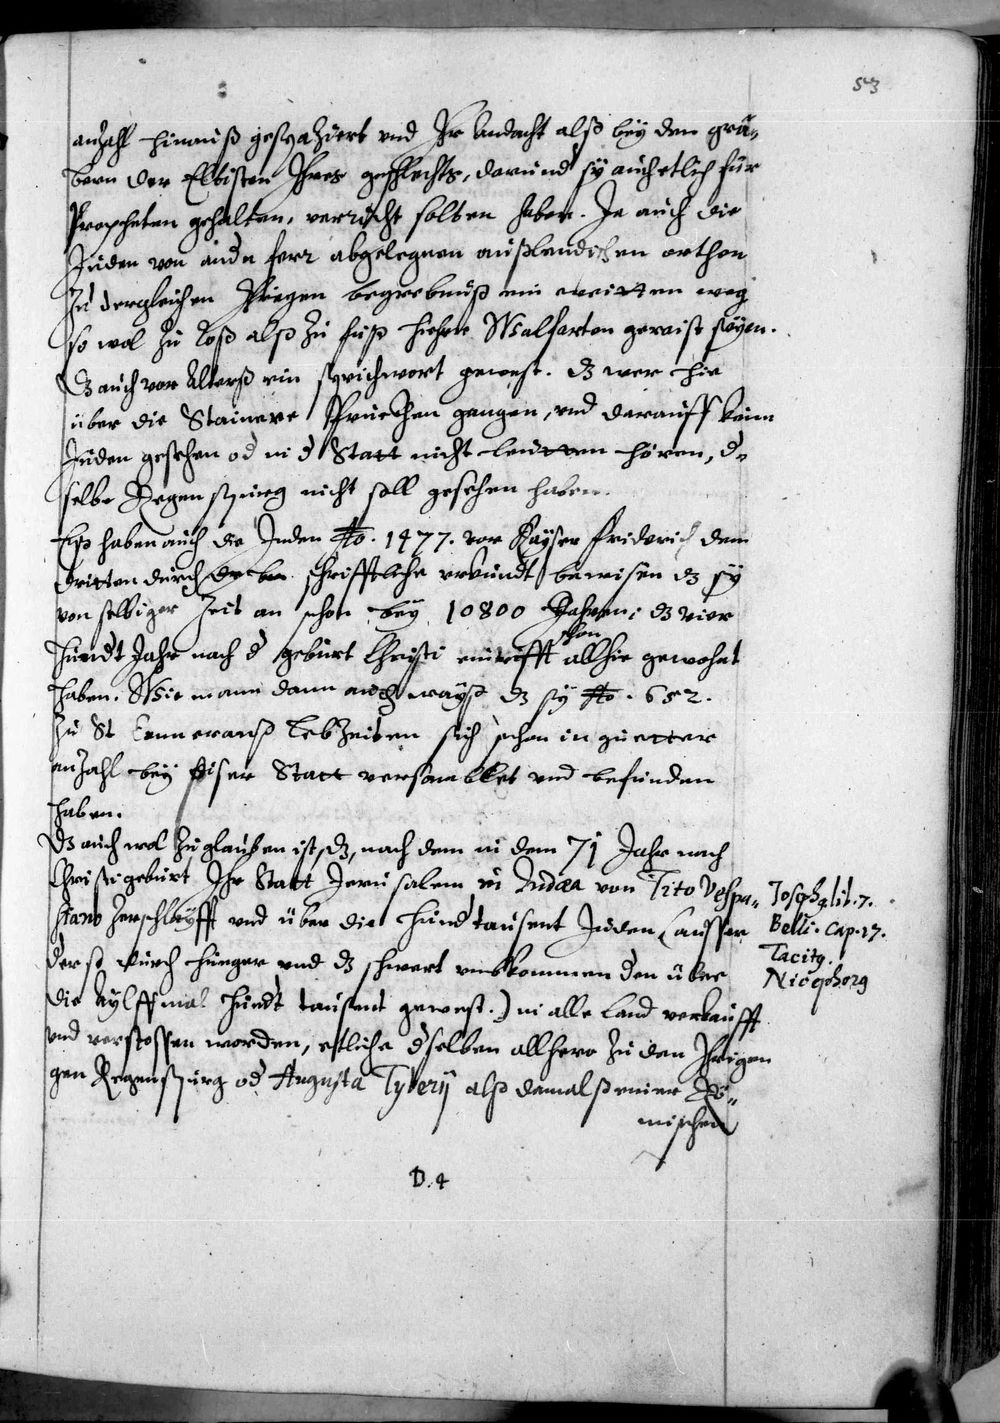 53
anzahl hinauß gespaziert vnd Ihr Andacht alß bey den grä„
bern der Eltisten Ihres geschlechts, darund sy auch etlich für
Propheten gehalten, verricht solten haben. Ja auch die
Juden von andn ferr abgelegnen außlendischen orthen
Zu dergleichen Ihrigen begrebnuß ein weitten weg
so wol zu Roß alß zu fuß hieher Walfarten geraist seyen.
Dz auch vor Alterß ein sprichwort gewest. Dz wer hie
über die Stainere Pruckhen gangen, vnd darauff kein
Juden gesehen od in d Statt nicht leutten hören, d„
selbe Regenspurg nicht soll gesehen haben.
Eß haben auch die Juden Ao. 1477. vor Kayser Friderich dem
dritten durch schrifftliche vrkundt bewisen dz sy
von selbiger Zeit an schon bey 10800 Jahren; dz vier
schon
hundt Jahr nach d geburt Christi eintrifft allhie gewohnt
haben. Wie mann dann auch wayß dz sy Ao. 652.
Zu St Emmeranß LebZeiten sich schon in guetter
anzahl bey diser Statt versamblet vnd befunden
haben.
Dz auch wol zu glauben ist, dz, nach dem in dem 71 Jahr nach
Christi geburt Ihr Statt Jerusalem in Judæa von Tito Vespa„
siano zerschlayfft vnd über die hundtausent Juden (ausser
der so durch hunger vnd dz schwert vmbkommen den über
die Aylffmal hundt tausent gewest.) in alle Land verkaufft
vnd verstossen worden, etliche dselben allhero zu den Ihrigen
gen Regenspurg od Augusta Tyberij alß damalß einer Rö„
mischen
Joseph9 lib. 7.
Belli. Cap. 17.
Tacit9.
Nicephor9
D. 4